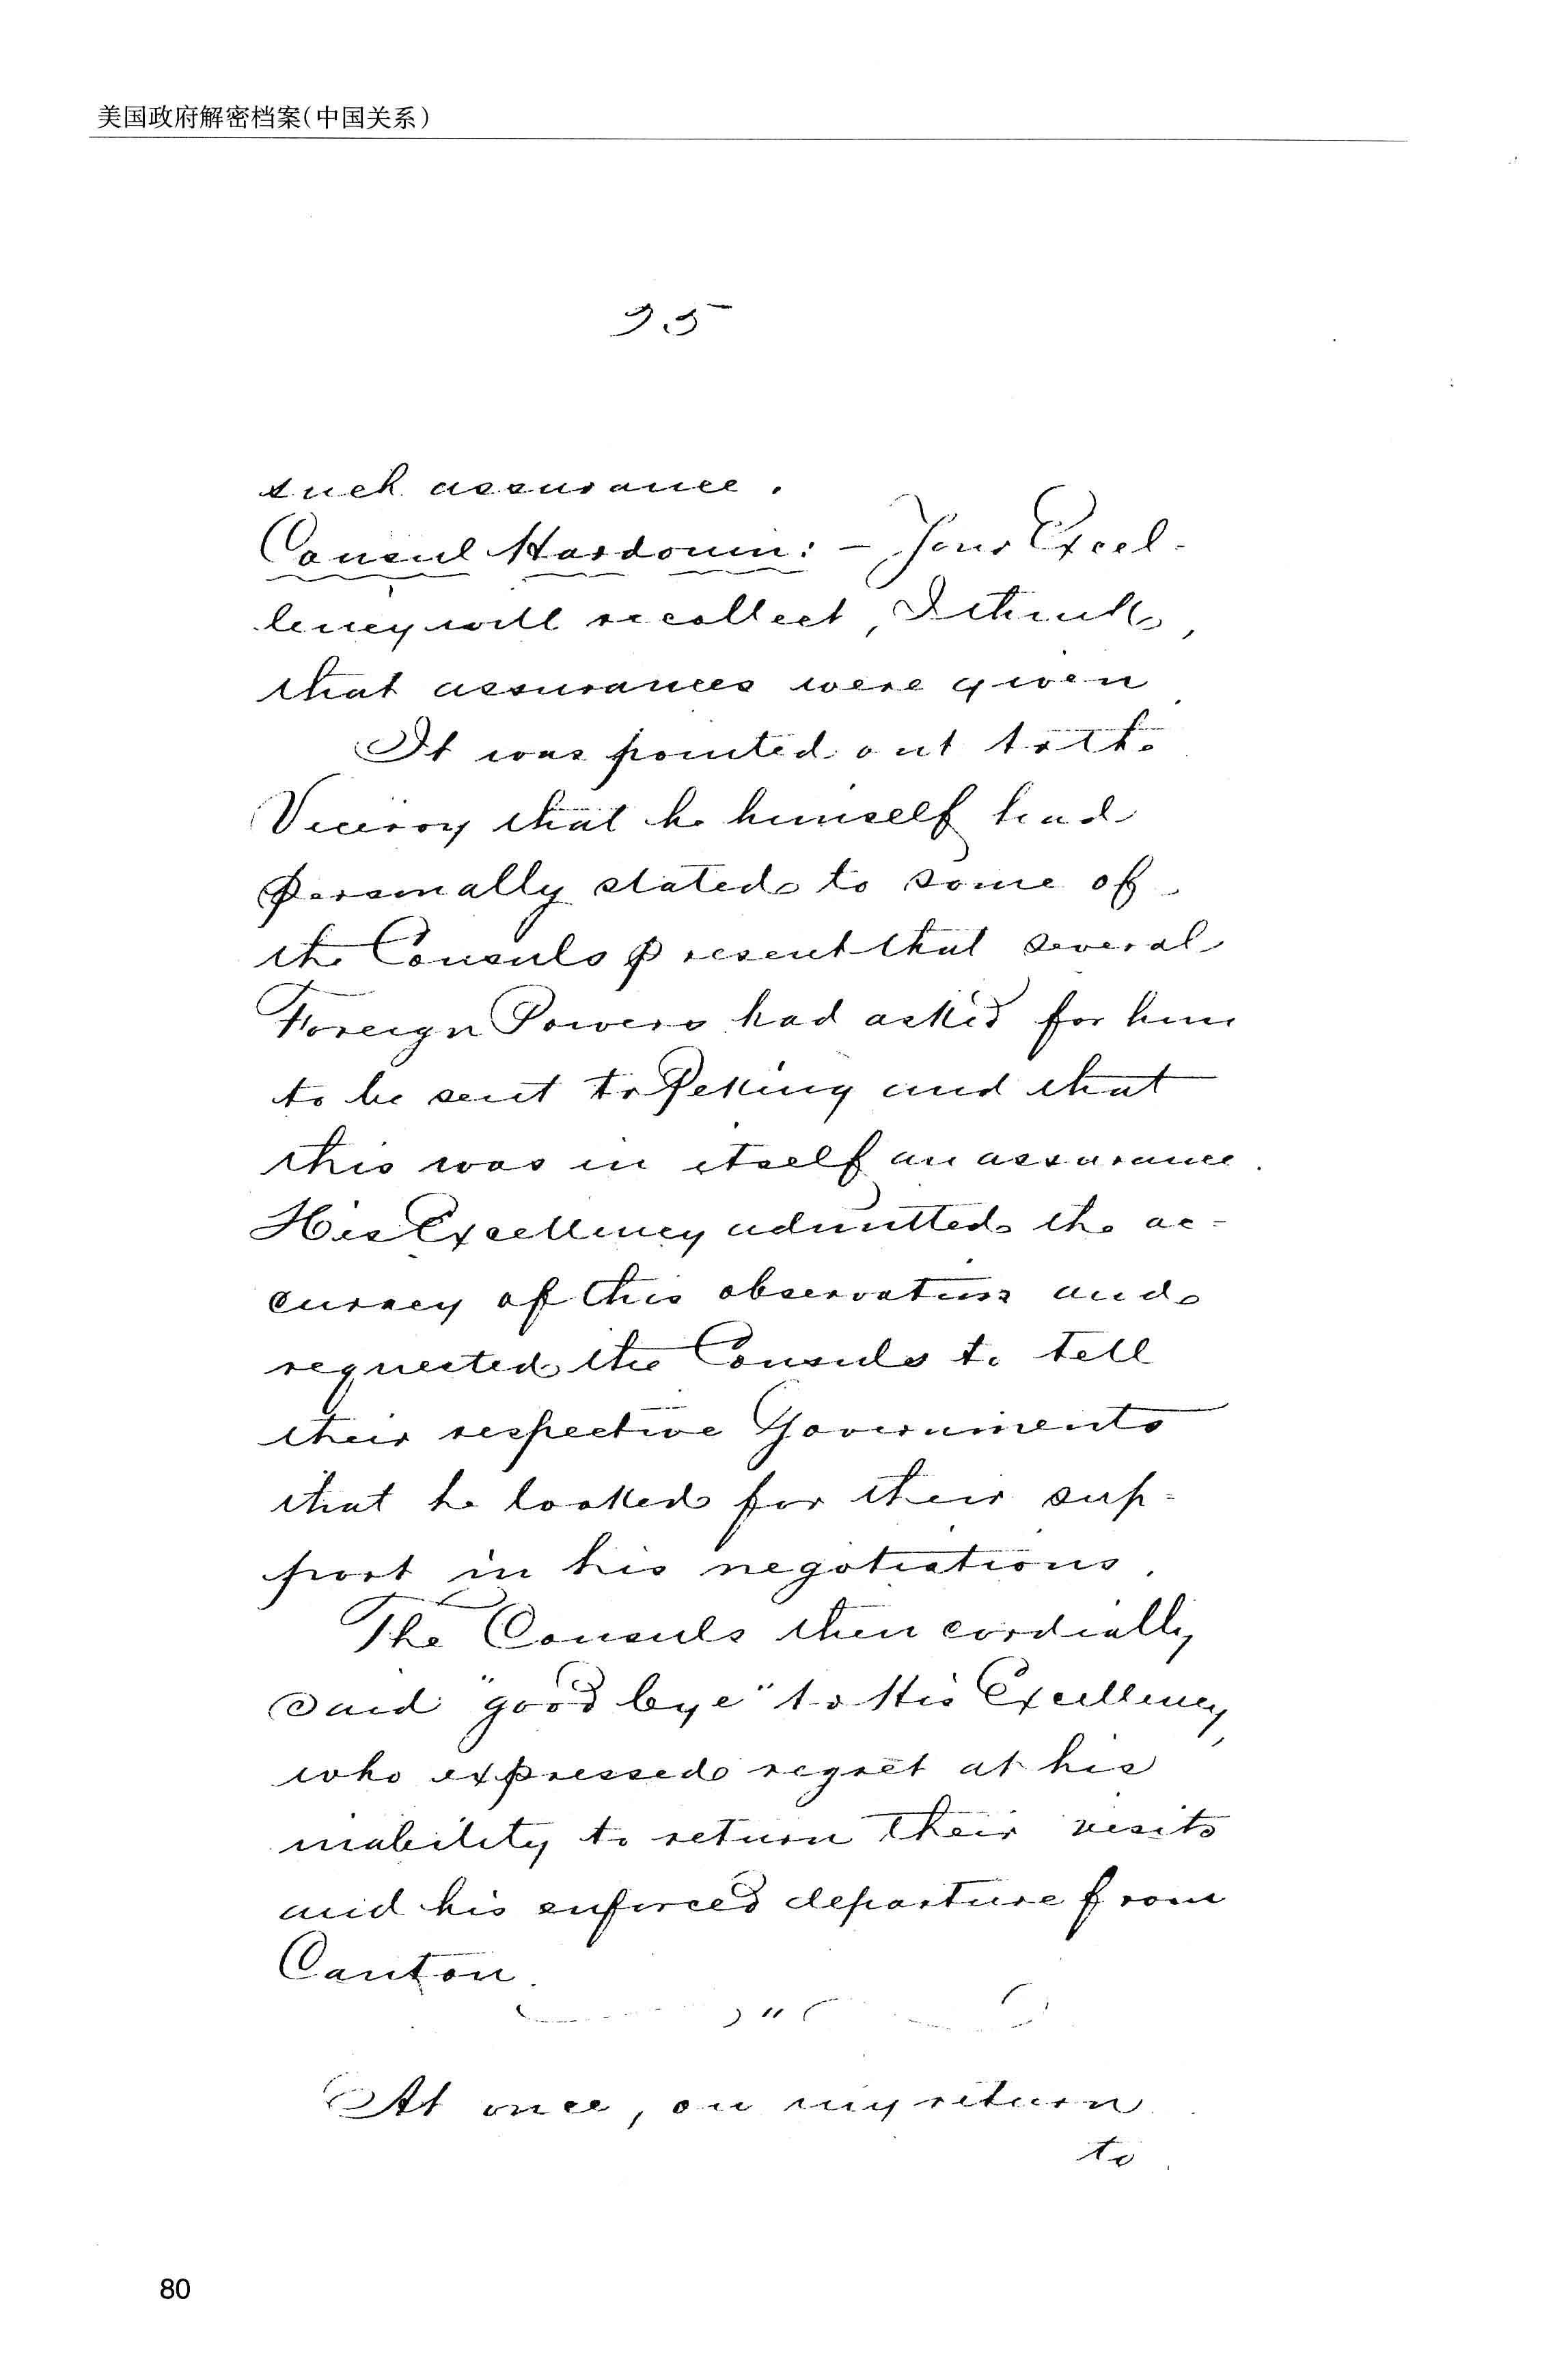 美国政府解密档案(中国关系)
35
such assurance.
Consul Hardouin: — Your Excel-
lency will recollect, I think,
that assurances were given.
It was pointed out to the
Viceroy that he himself had
personally stated to some of
the Consuls present that several
Foreign Powers had asked for him
to be sent to Peking and that
this was in itself an assurance.
His Excellency admitted the ac-
curacy of this observation and
requested the Consuls to tell
their respective Governments
that he looked for their sup-
port in his negotiations.
The Consuls then cordially
said "good bye" to His Excellency,
who expressed regret at his
inability to return their visits
and his enforced departure from
Canton.
At once, on my return
to
80